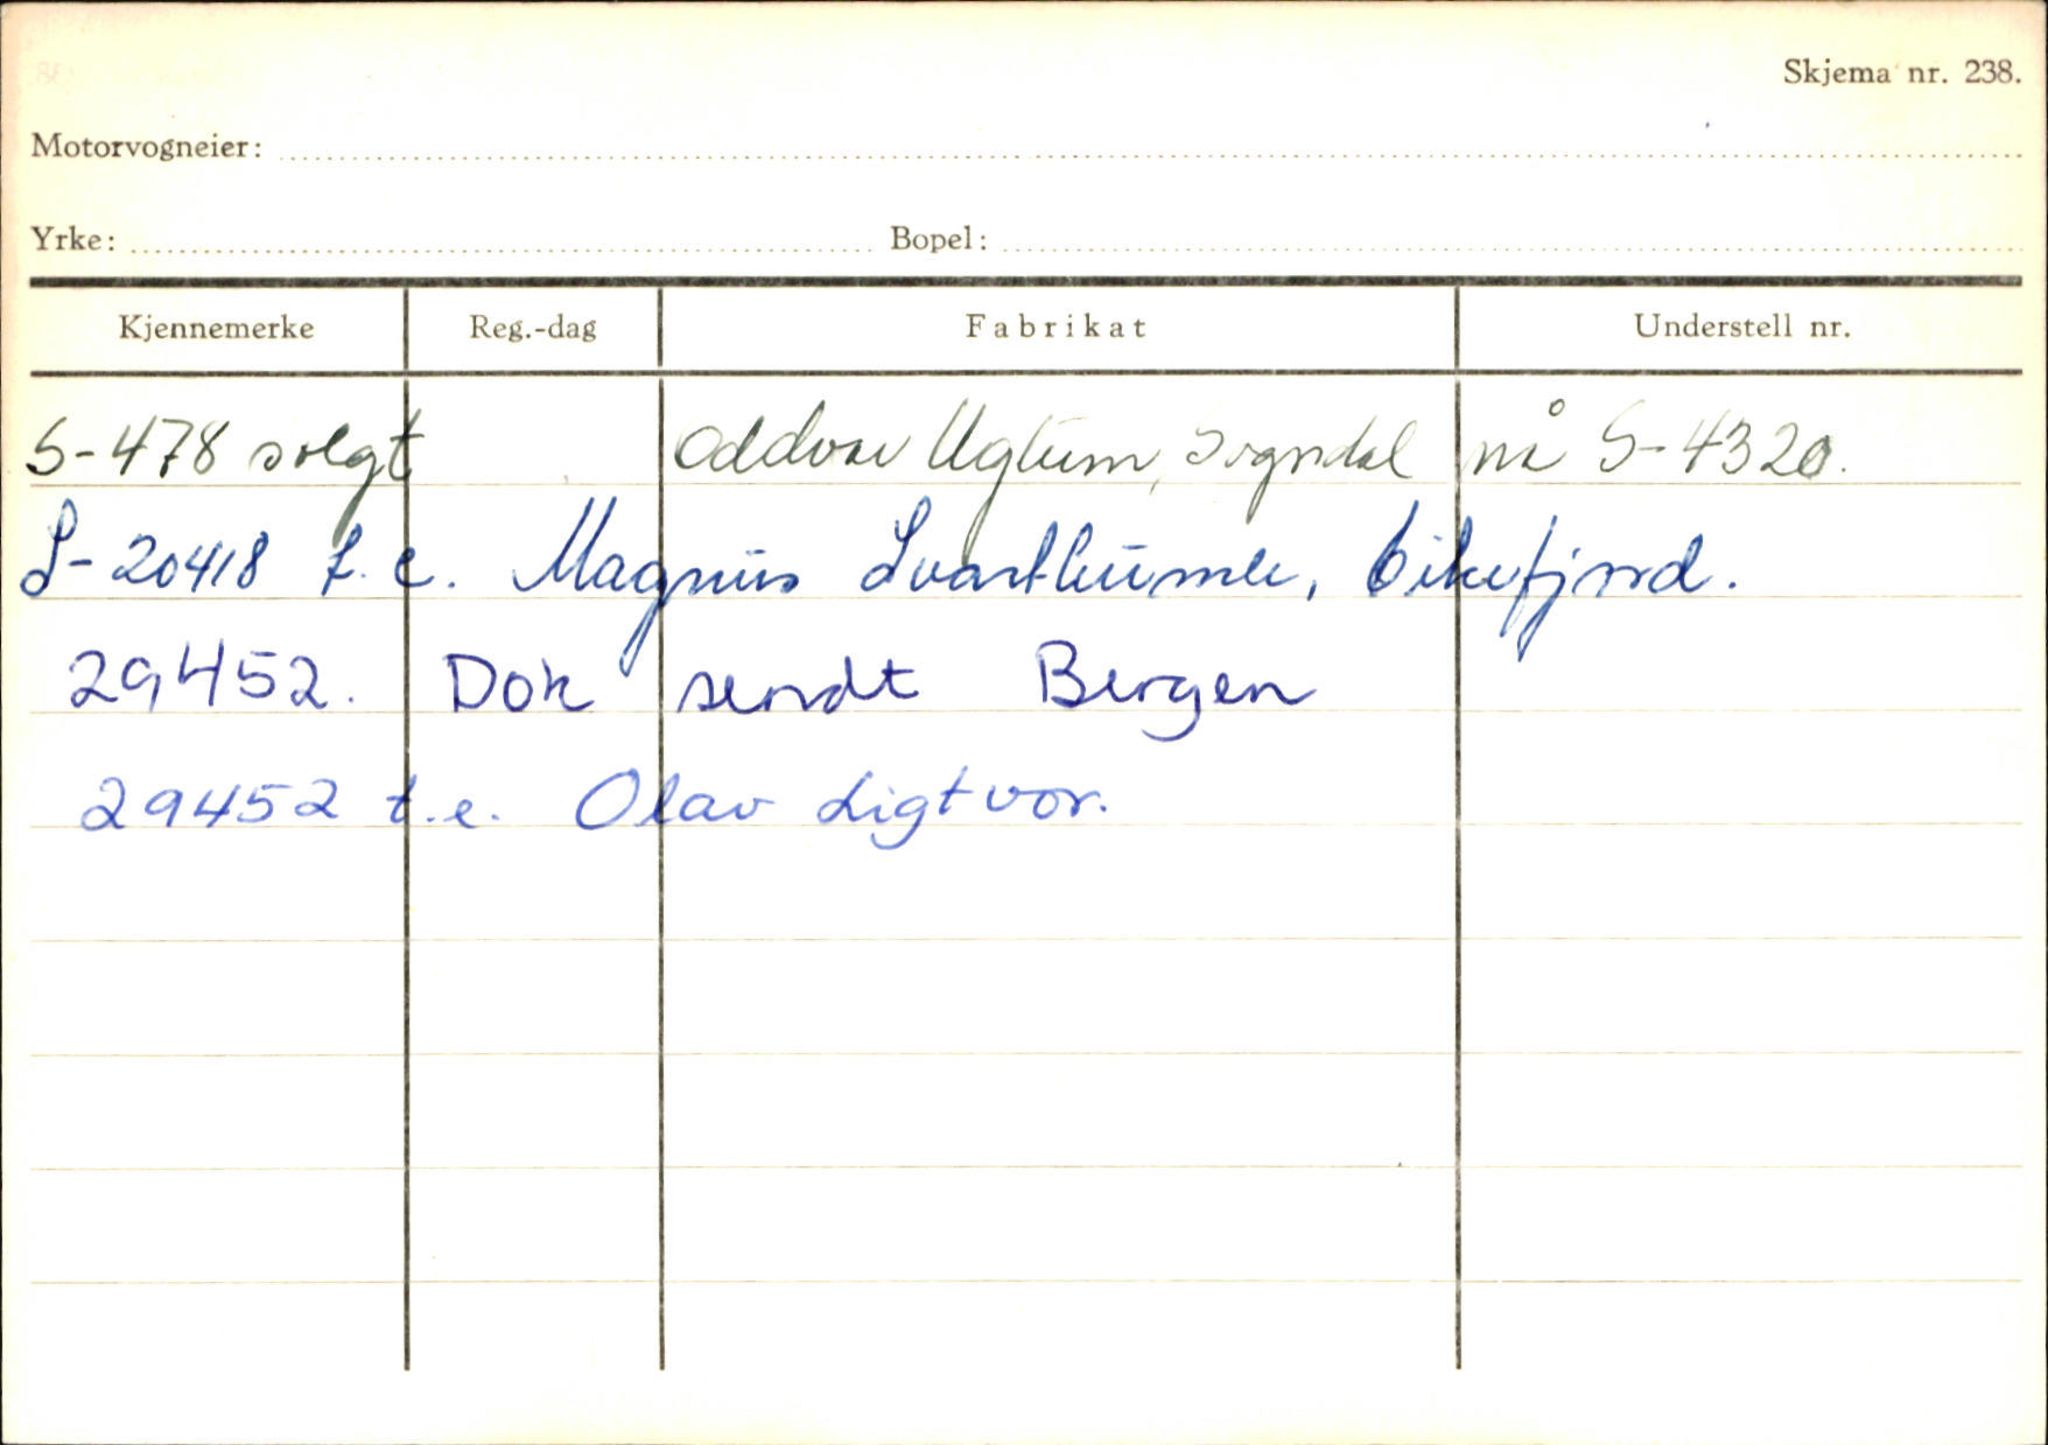 Skjema nr. 238.
Motorvogneier:
Yrke: Bopel:
Kjennemerke Reg.-dag Fabrikat Understell nr.
S-478 solgt Oddvar Uglum, Sogndal nå S-4320.
S-20418 t.e. Magnus Svarthumle, Eikefjord.
29452. Dok sendt Bergen
29452 t.e. Olav Ligtvor.